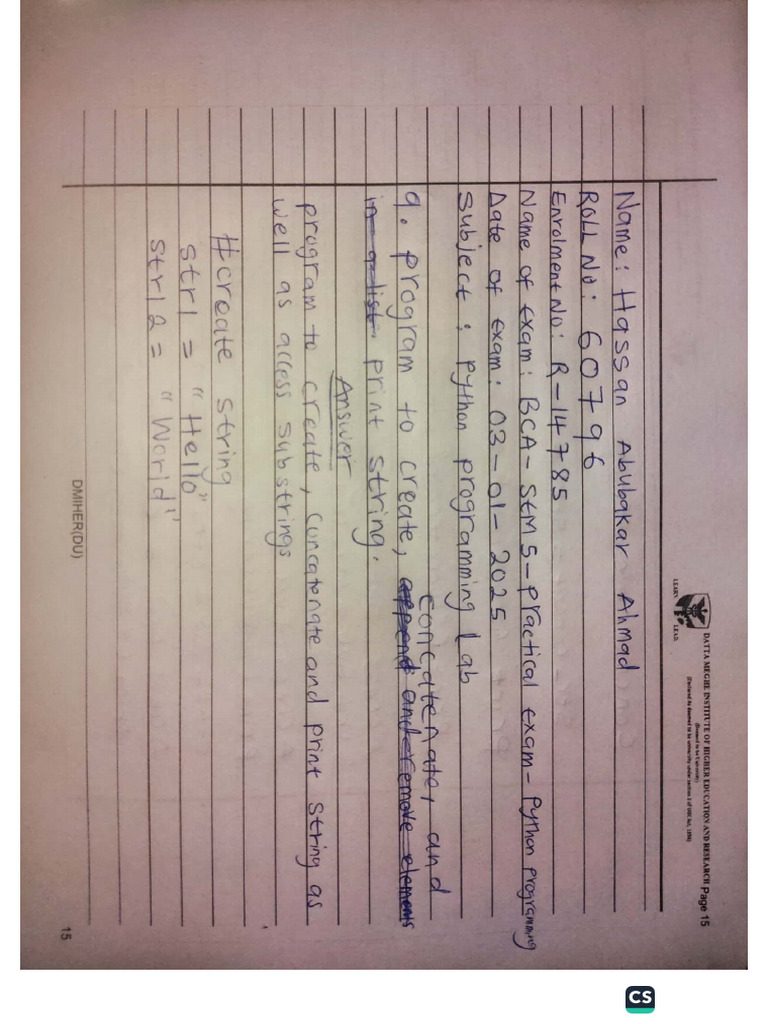 DATTA MEGHE INSTITUTE OF HIGHER EDUCATION AND RESEARCH Page 15
(Deemed to be University)
LEARN LEAD
Name: Hassan Abubakar Ahmad
ROLL No: 60796
Enrolment No: R-14785
Name of Exam: BCA-SEM 5-Practical exam-Python programming
Date of Exam: 03-01-2025
Subject: Python programming Lab
concatenate, and
9. program to create, append and remove elements
in a list print string.
Answer
program to create, Concatenate and print string as
well as access substrings
#create string
str1 = "Hello"
str12 = "World"
DMIHER(DU)
15
CS